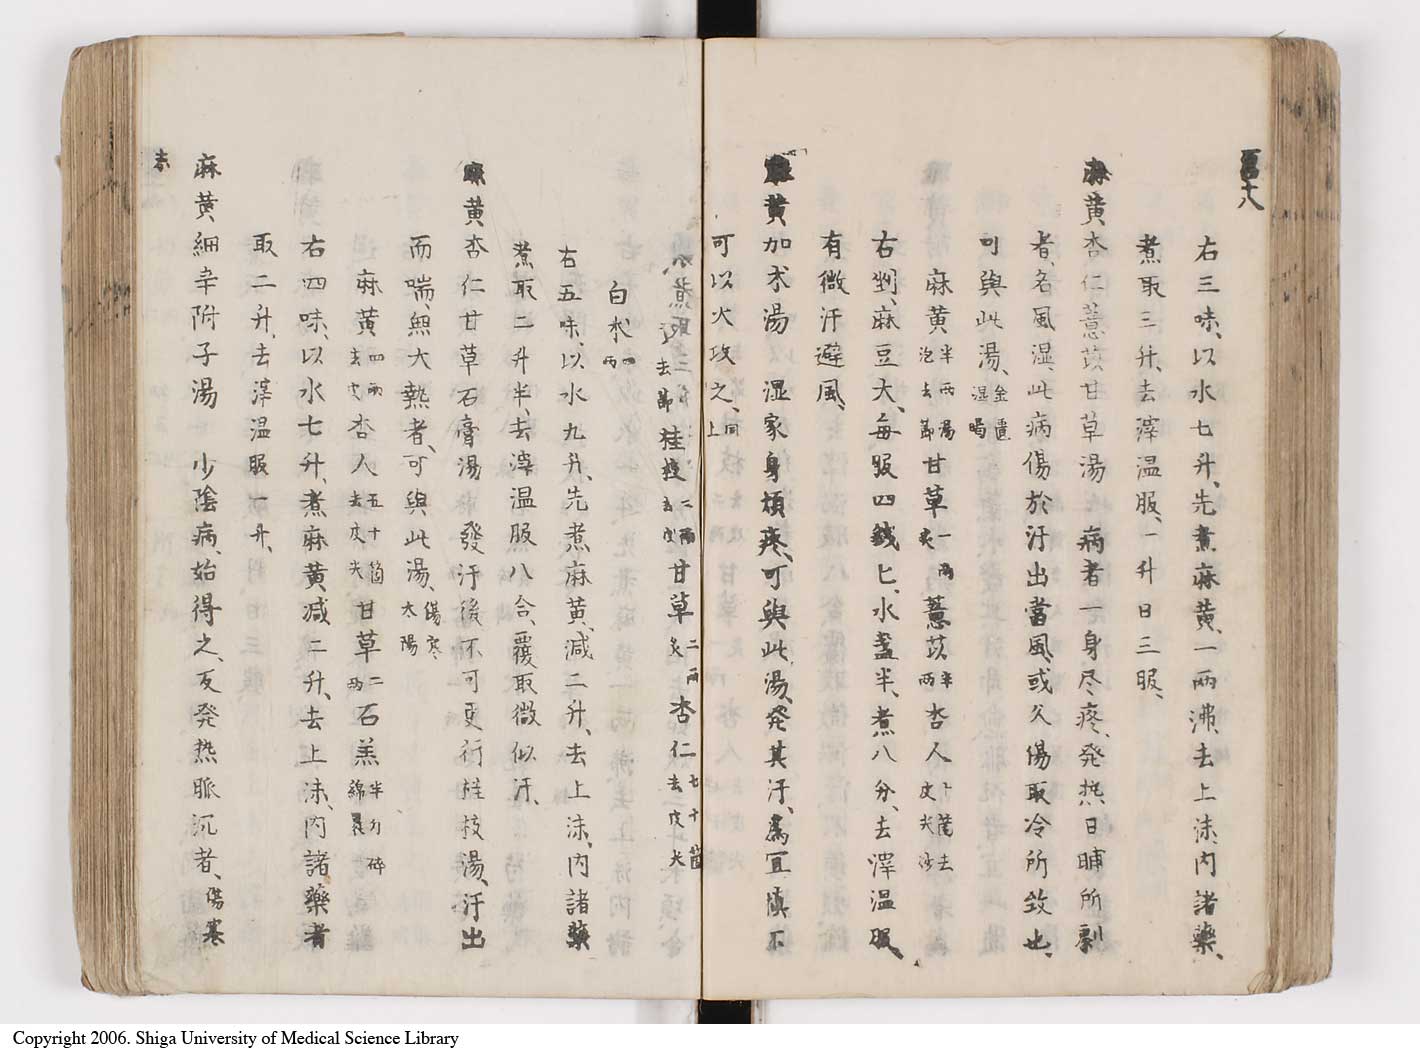 百十八
右三味、以水七升、先煮麻黄、一両沸、去上沫、内諸藥、
煮取三升、去滓温服、一升日三服、
麻黄杏仁薏苡甘草湯　病者一身尽疼、発热、日晡所劇
者、名風湿、此病傷於汗出當風、或久傷取冷所致也、
可與此湯、金匱湿暍
麻黄半両湯泡去節甘草一両炙薏苡半両杏人十箇去皮尖炒
右剉、麻豆大、每服四銭匕、水盞半、煮八分、去滓温服、
有微汗避風、
麻黄加朮湯　湿家身煩疼、可與此湯、発其汗、為宜慎不
可以火攻之、同上
去節桂枝二両去皮甘草二両炙杏仁七十箇去皮尖
白朮四両
右五味、以水九升、先煮麻黄、减二升、去上沫、内諸藥
煮取二升半、去滓温服八合、覆取微似汗、
麻黄杏仁甘草石膏湯　發汗後不可更行桂枝湯、汗出
而喘、無大熱者、可與此湯、傷寒太陽
麻黄四両去皮杏人五十箇去皮尖甘草二両石羔半斤碎綿裹
右四味、以水七升、煮麻黄减二升、去上沫、内諸藥者
取二升、去滓温服一升、
麻黄細辛附子湯　少陰病、始得之、反発热脈沉者、傷寒